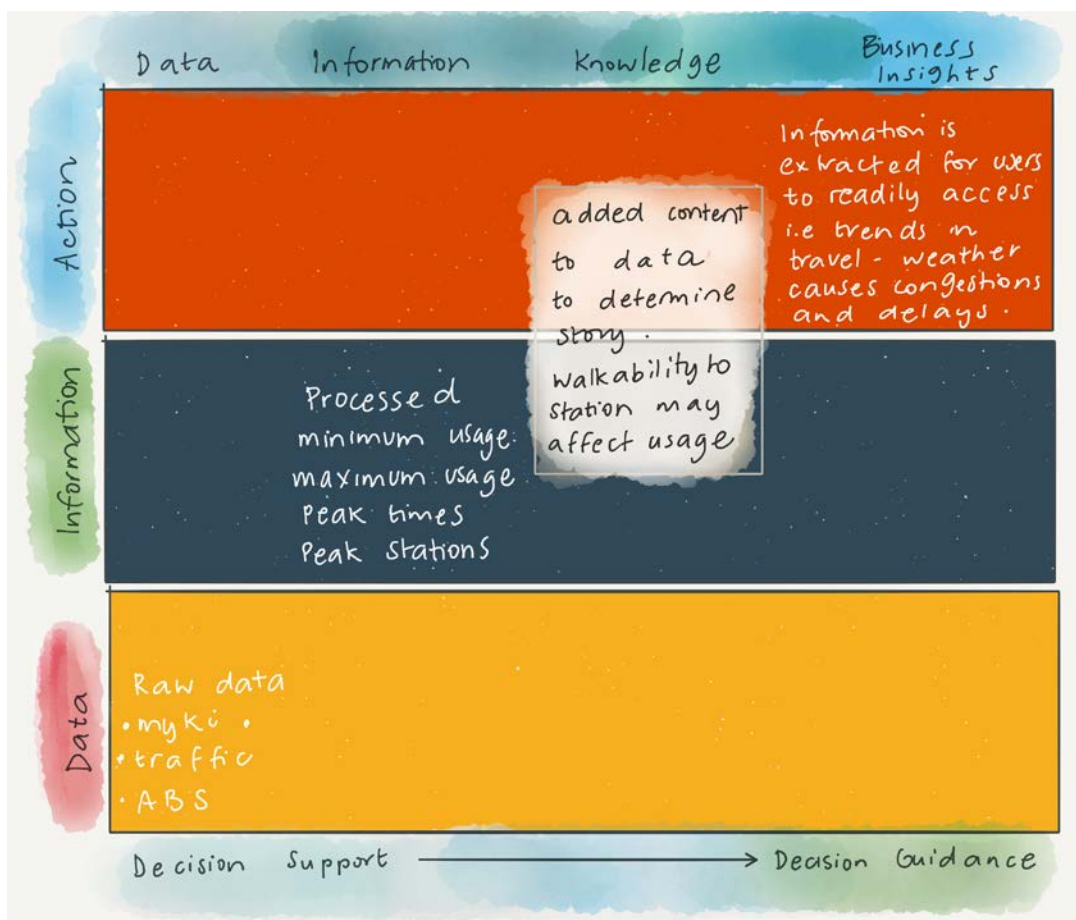 Data
Information
Knowledge
Business
Insights
Action
Information is
extracted for users
to readily access
i.e trends in
travel - weather
causes congestions
and delays.
added content
to data
to determine
story.
walkability to
station may
affect usage
Information
Processed
minimum usage.
maximum usage
Peak times
Peak stations
Data
Raw data
• myki •
• traffic
• ABS
Decision Support → Decision Guidance